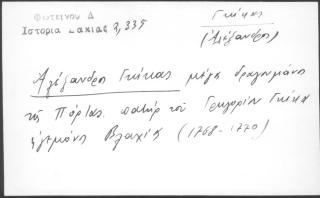 Φωτεινου Δ
Ιστορια Δακιας 2,335
Γκίκας
(Αλέξανδρος)
Αλέξανδρος Γκίκας μέγας δραγουμάνος
της Πόρτας. πατήρ του Γρηγορίου Γκίκα
ηγεμόνος Βλαχίας (1768-1770)